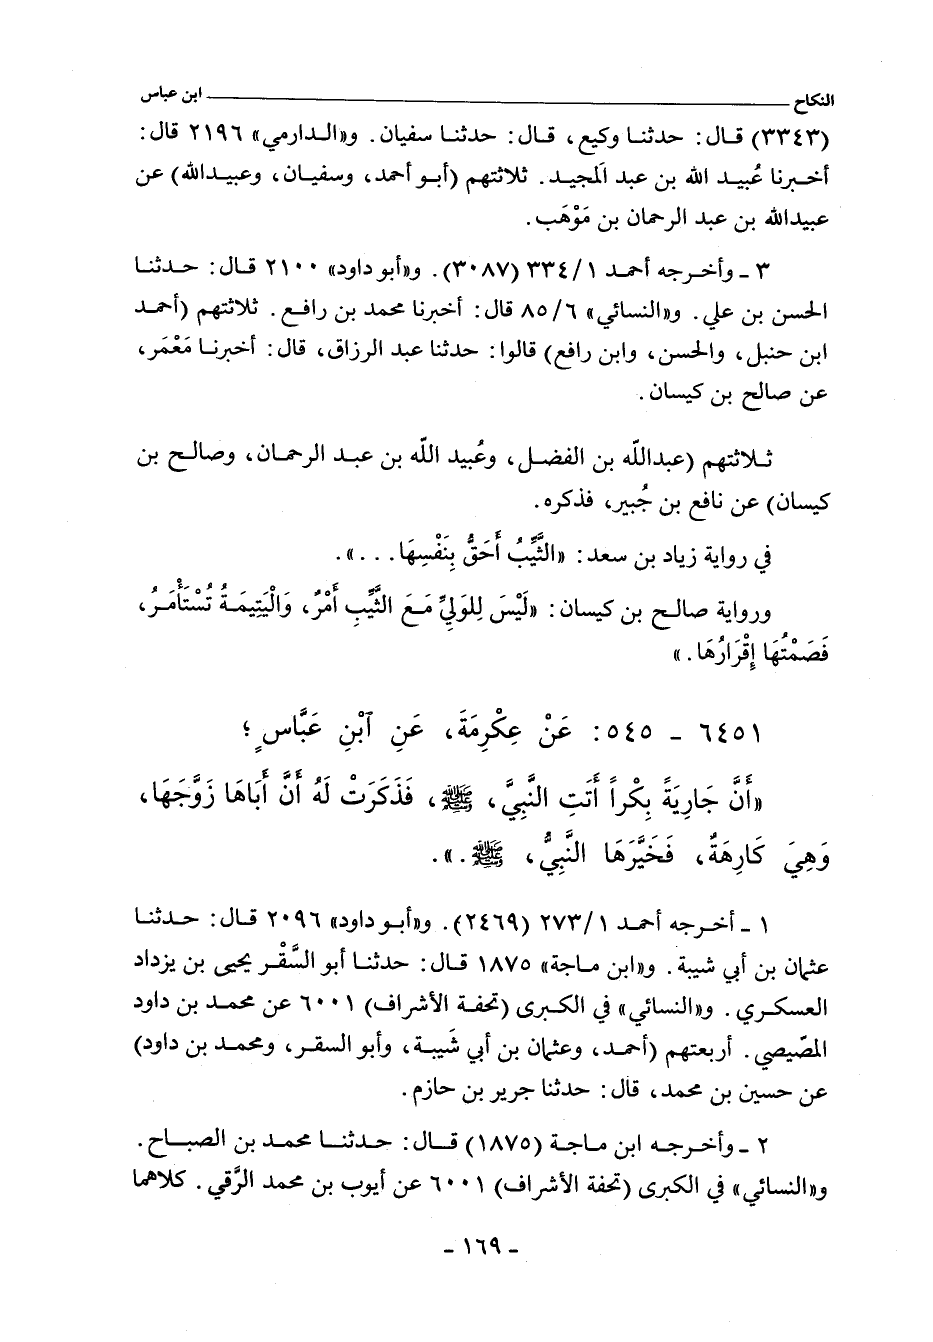 النكاح ــــــــــــــــ ابن عباس
(٣٣٤٣) قال: حدثنا وكيع، قال: حدثنا سفيان. و«الدارمي» ٢١٩٦ قال:
أخبرنا عُبيد الله بن عبد المجيد. ثلاثتهم (أبو أحمد، وسفيان، وعبيدالله) عن
عبيدالله بن عبد الرحمان بن مَوْهَب.
٣ ـ وأخرجه أحمد ٣٣٤/١ (٣٠٨٧). و«أبو داود» ٢١٠٠ قال: حدثنا
الحسن بن علي. و«النسائي» ٨٥/٦ قال: أخبرنا محمد بن رافع. ثلاثتهم (أحمد
ابن حنبل، والحسن، وابن رافع) قالوا: حدثنا عبد الرزاق، قال: أخبرنا مَعْمَر،
عن صالح بن كيسان.
ثلاثتهم (عبدالله بن الفضل، وعُبيد الله بن عبد الرحمان، وصالح بن
كيسان) عن نافع بن جُبير، فذكره.
في رواية زياد بن سعد: «الثَّيِّبُ أَحَقُّ بِنَفْسِهَا...».
ورواية صالح بن كيسان: «لَيْسَ لِلوَلِيِّ مَعَ الثَّيِّبِ أَمْرٌ، وَالْيَتِيمَةُ تُسْتَأْمَرُ،
فَصَمْتُهَا إِقْرَارُهَا.»
٦٤٥١ ـ ٥٤٥: عَنْ عِكْرِمَةَ، عَنِ ٱبْنِ عَبَّاسٍ؛
«أَنَّ جَارِيَةً بِكْراً أَتَتِ النَّبِيَّ، ﷺ، فَذَكَرَتْ لَهُ أَنَّ أَبَاهَا زَوَّجَهَا،
وَهِيَ كَارِهَةٌ، فَخَيَّرَهَا النَّبِيُّ، ﷺ.».
١ ـ أخرجه أحمد ٢٧٣/١ (٢٤٦٩). و«أبو داود» ٢٠٩٦ قال: حدثنا
عثمان بن أبي شيبة. و«ابن ماجة» ١٨٧٥ قال: حدثنا أبو السَّقْر يحيى بن يزداد
العسكري. و«النسائي» في الكبرى (تحفة الأشراف) ٦٠٠١ عن محمد بن داود
المصّيصي. أربعتهم (أحمد، وعثمان بن أبي شَيبة، وأبو السقر، ومحمد بن داود)
عن حسين بن محمد، قال: حدثنا جرير بن حازم.
٢ ـ وأخرجه ابن ماجة (١٨٧٥) قال: حدثنا محمد بن الصباح.
و«النسائي» في الكبرى (تحفة الأشراف) ٦٠٠١ عن أيوب بن محمد الرَّقي. كلاهما
- ١٦٩ -